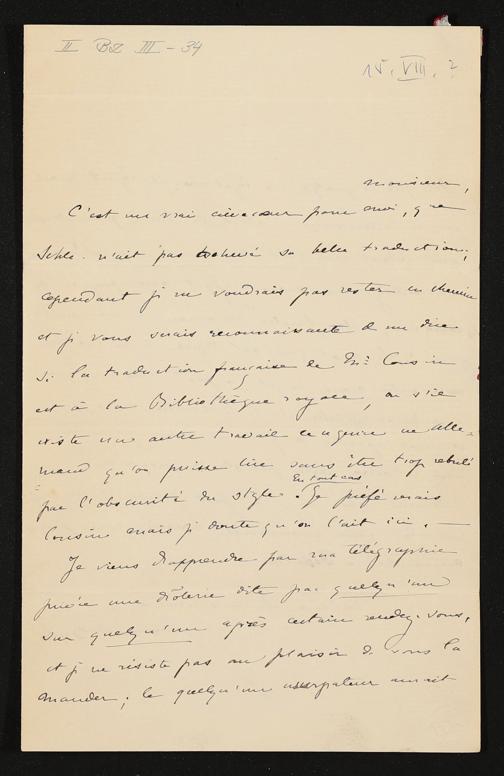 II BZ III - 34
15. VIII. ?
Monsieur,
C'est un vrai crèvecœur pour moi, que
Schle. n'ait pas achevé sa belle traduction;
cependant je ne voudrais pas rester en chemin
et je vous serais reconnaissante de me dire
si la traduction française de Mr. Cousin
est à la Bibliothèque royale, ou s'il
existe un autre travail ce genre en alle-
mand qu'on puisse lire sans être trop rebuté
par l'obscurité du style. En tout cas Je préférerais
Cousin mais je doute qu'on l'ait ici. —
Je viens d'apprendre par ma télégraphie
privée une drôlerie dite par quelqu'un
sur quelqu'un après certain rendez-vous,
et je ne résiste pas au plaisir de vous la
mander; le quelqu'un usurpateur aurait